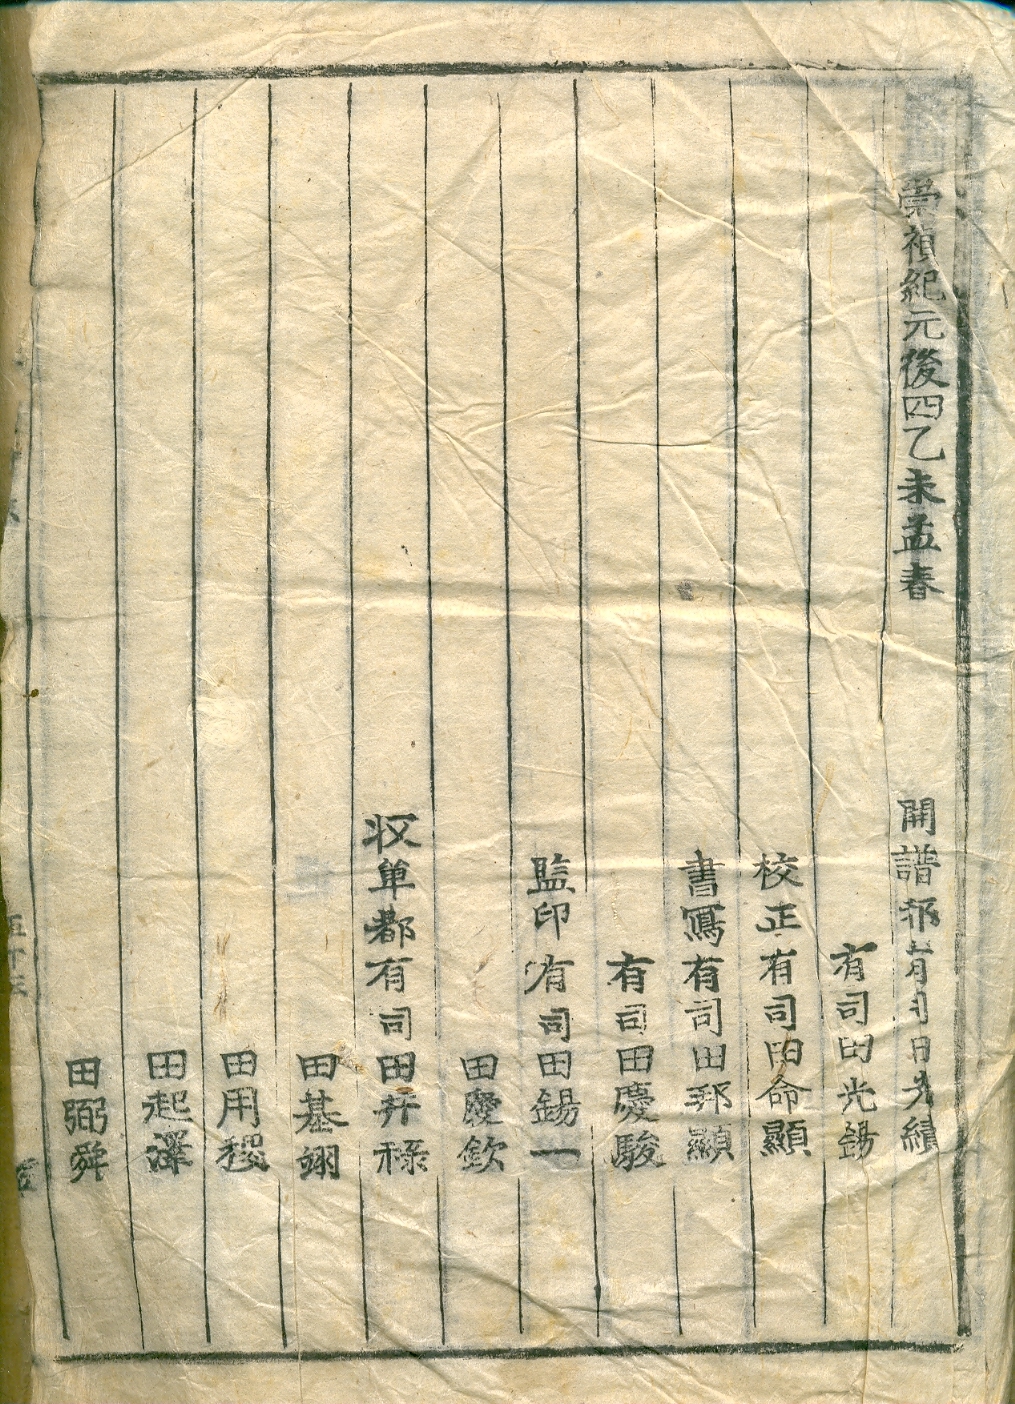 崇禎紀元後四乙未孟春
開譜都有司田光績
有司田光錫
校正有司田命顯
書寫有司田邦顯
有司田慶駿
監印有司田錫一
田慶欽
収单都有司田禄
田基翊
田用稷
田起澤
田弼舜